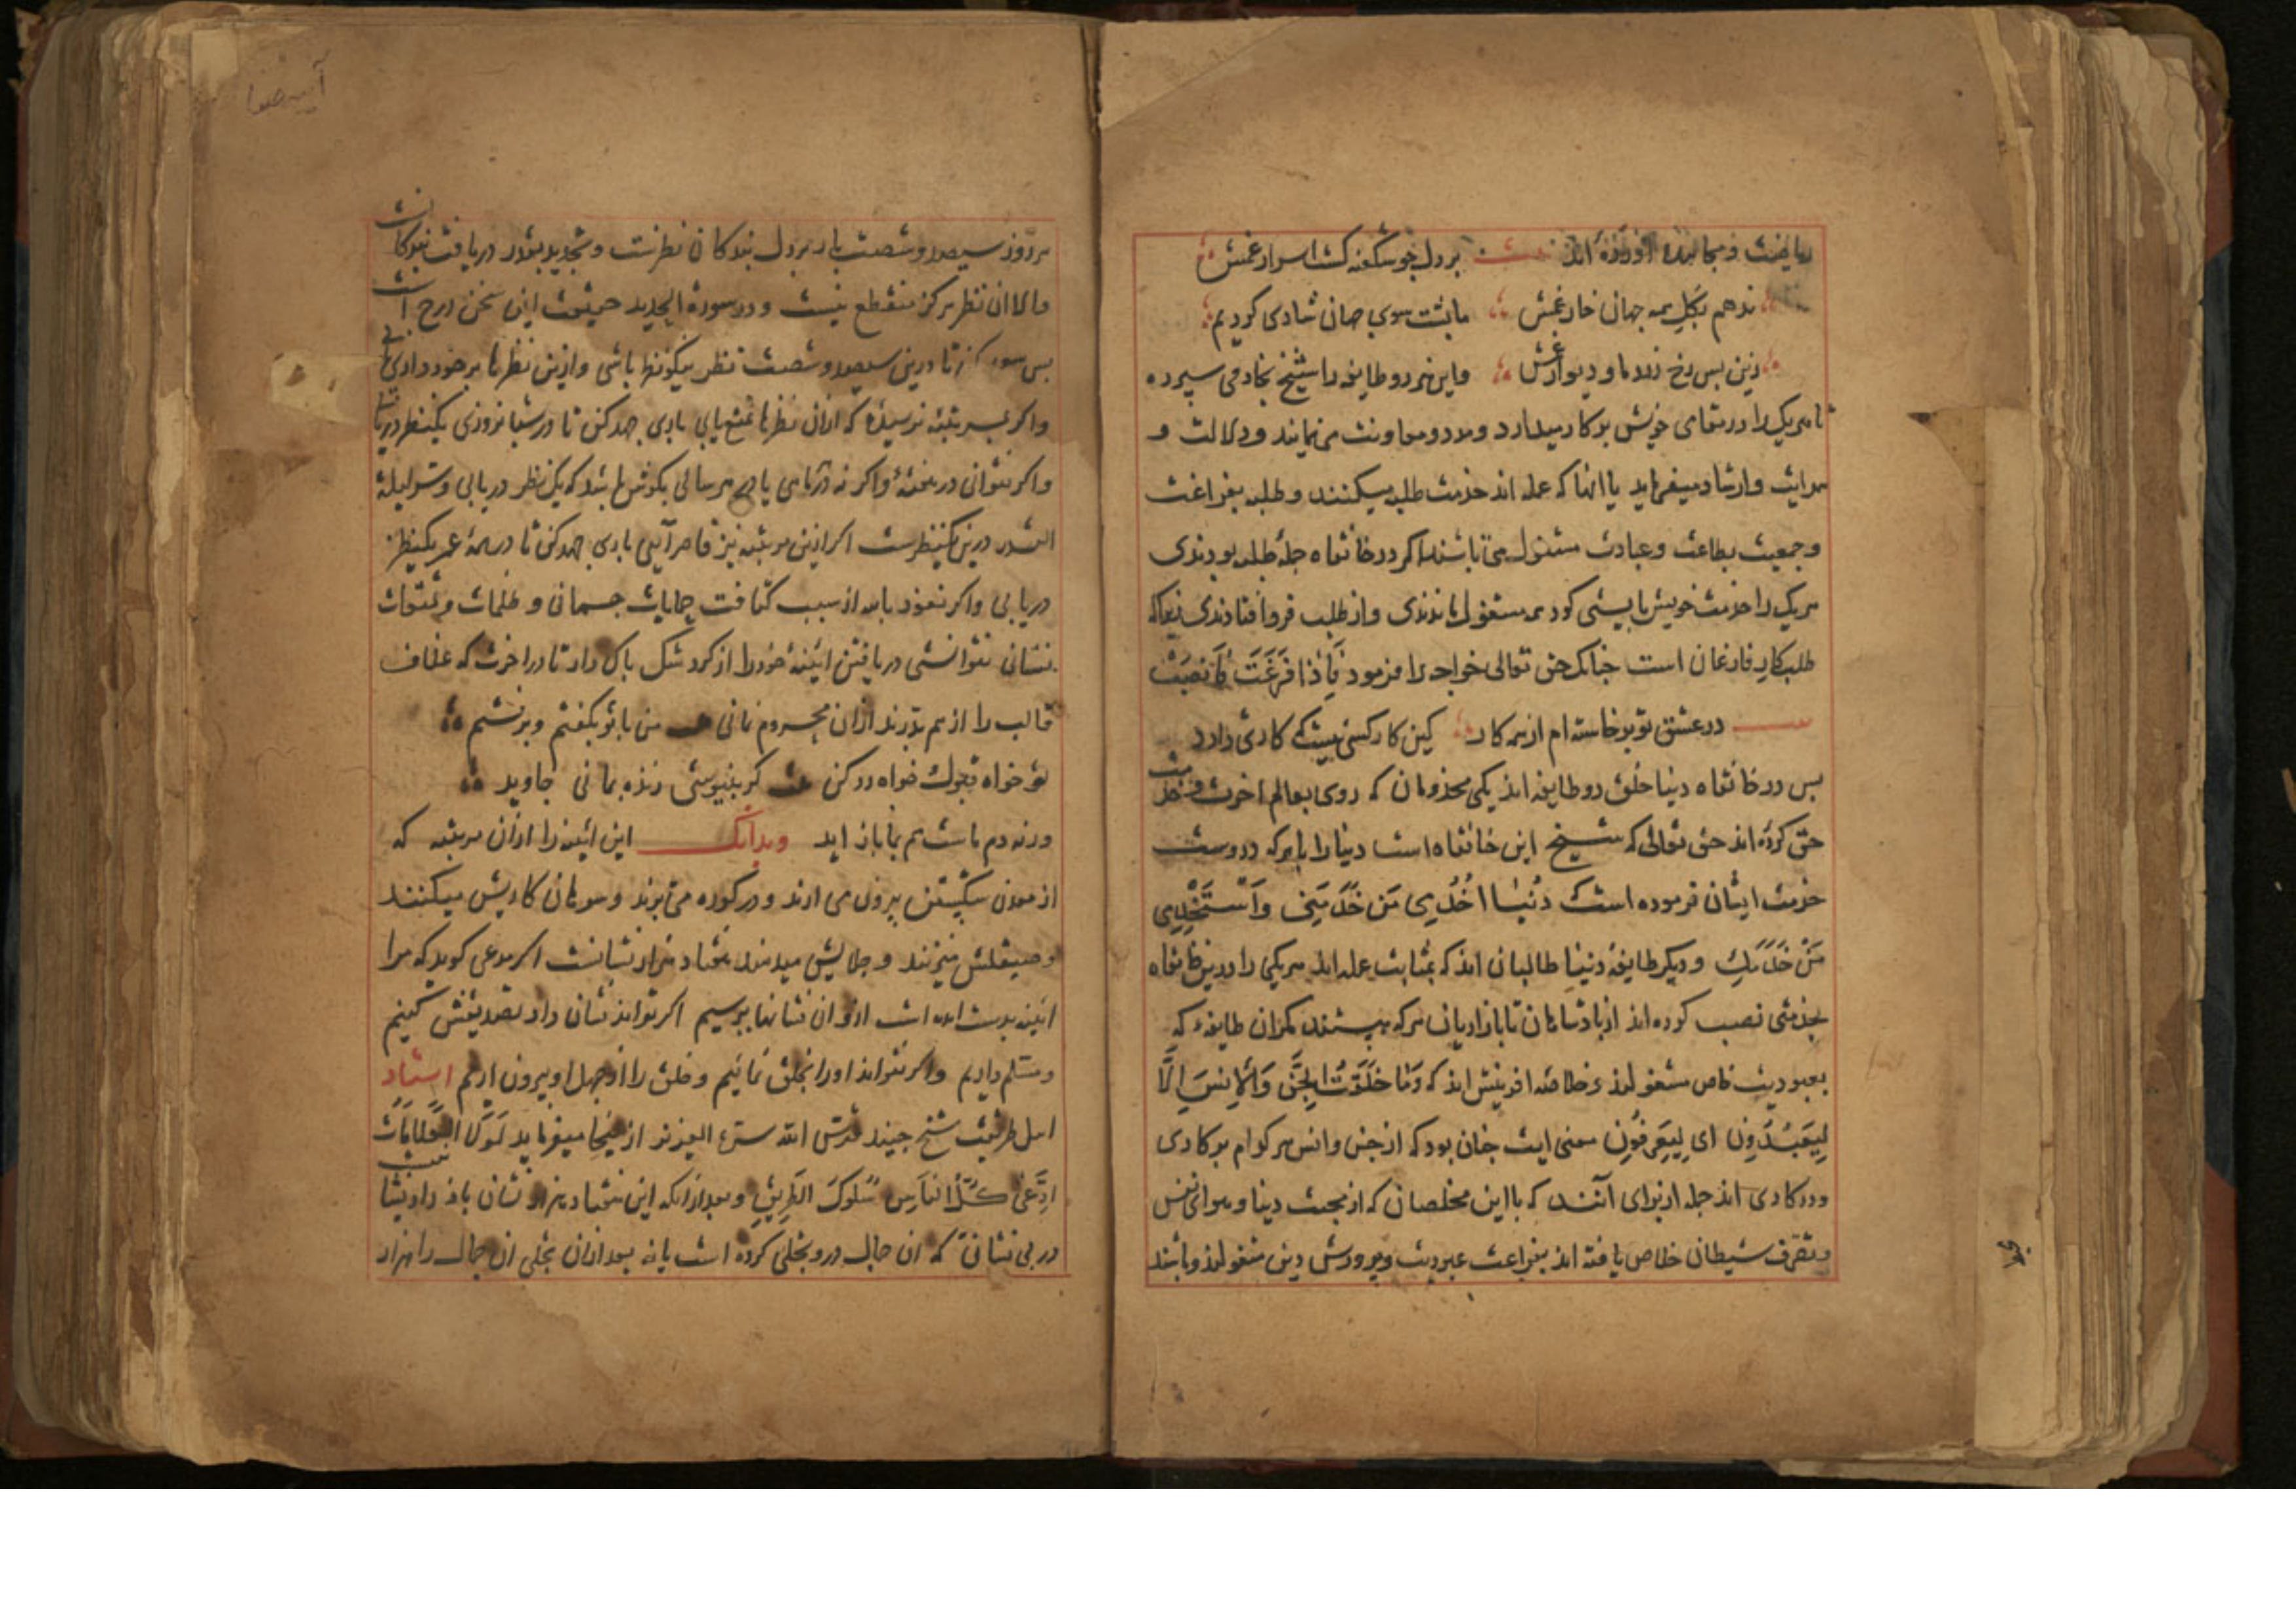 ریاضت و مجاهده آورده اند بیت بر دل چو شکفته گشت اسرار غمش
ندهم بگل همه جهان خار غمش ما پشت سوی جهان شادی کردیم
زین پس رخ زرد ما و دیوار غمش و این هر دو طایفه را شیخ بخادمی سپرده
تا هریک را در مقامی خویش بر کار میدارد و مدد و معاونت می نماید و دلالت و
هدایت و ارشاد میفرماید یا آنها که عمله اند خدمت طلبه میکنند و طلبه بفراغت
و جمعیت بطاعت و عبادت مشغول می باشند اگر در خانقاه جمله طلبه بودندی
هریک را خدمت خویش بایستی کرد همه مشغول ماندندی و از طلب فرو افتادندی زیرا که
طلب کار فارغان است چنانک حق تعالی خواجه را فرمود فَاِذا فَرَغتَ فَانصَبْ
در عشق تو برخاسته ام از همه کار کین کار کسی نیست که کاری دارد
پس در خانقاه دنیا خلق دو طایفه اند یکی مخدومان که روی بعالم آخرت و خدمت
حق کرده اند حق تعالی که شیخ این خانقاه است دنیا را با هرکه در وست
خدمت ایشان فرموده است که دُنیا اخْدُمِی مَن خَدَمَنِی وَاسْتَخْدِمِی
مَنْ خَدَمَكِ و دیگر طایفه دنیا طالبان اند که بمثابت عمله اند هریکی را درین خانقاه
بخدمتی نصب کرده اند از پادشاهان تا بازاریان هرکه هستند مگر آن طایفه که
بعبودیت خاص مشغولند و خلاصه آفرینش اند که وَمَا خَلَقْتُ الجِنَّ وَالاِنسَ اِلَّا
لِیَعْبُدُونِ ای لِیَعرِفُونِ معنی آیت چنان بود که از جن و انس هر کدام بر کاری
و در کاری اند جمله از برای آنند که با این مخلصان که از محبت دنیا و هوای نفس
و تصرف شیطان خلاص یافته اند بفراغت عبودیت و پرورش دین مشغولند و باشند
آیینه صفا
هر روز سیصد و شصت بار بر دل بندگان نظرست و تجدید بقدر دریافت بندگانست
والا آن نظر هرگز منقطع نیست و در سورة الحدید حقیقت این سخن درج است
درین سیصد و شصت نظر نیکونظر باشی و ازین نظرها برخورداری یابی
واگر بمرتبه نرسیده که ازان نظرها تمتع یابی باری جهد کن تا در شبانروزی یکنظر دریابی
واگر نتوانی در هفته واگر نه در ماهی باری هر سالی بکوش باشد که یک نظر دریابی و سر لیلة
القدر درین یکنظرست اگر ازین مرتبه نیز قاصر آیی باری جهد کن تا در همه عمر یکنظر
دریابی واگر نعوذ بالله از سبب کثافت حجابات جسمانی و ظلمات و تعلقات
نفسانی نتوانستی دریافتن آیینه خود را از گرد شک پاک دار تا در آخرت که غلاف
قالب را از هم بدرند ازان محروم نمانی من با تو بگفتم و برفتم
تو خواه قبول خواه رد کن گر بنیوشی زنده بمانی جاوید
ورنه دم ماست هم بما باز آید و بدانک این آیینه را ازان مرتبه که
از معدن سنگیستن بیرون می آرند و در کوره می برند و سوهان کاریش میکنند
و صیقلش میزنند و جلایش میدهند هفتاد هزار نشانست اگر مدعی گوید که مرا
آیینه بدست آمده است ازو آن نشانها بپرسیم اگر تواند نشان داد تصدیقش کنیم
و مسلم داریم و اگر نتواند او را بخلق نمائیم و خلق را از جهل او بیرون آریم استاد
اهل طریقت شیخ جنید قدس الله سره العزیز از اینجا میفرماید لَوْلَا العَلَامَات
ادَّعَیٰ کُلُّ النَّاسِ سُلُوکَ الطَّرِیقِ و بعد از آنکه این هفتاد هزار نشان باز داد
در بی نشانی که آن جمال درو تجلی کرده است یا نه بعد ازان تجلی آن جمال را هزار